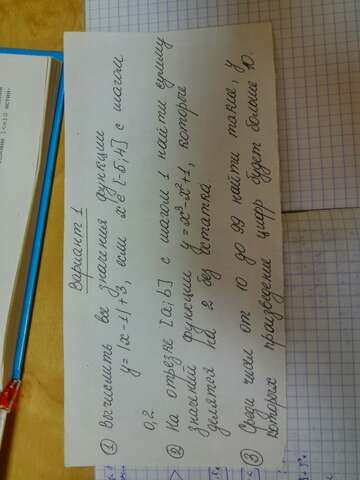 Вариант 1
① Вычислить все значения функции
y=|x-1|+3, если x∈[-5;4] с шагом
0,2
② На отрезке [a;b] с шагом 1 найти сумму
значений функции y=x³-x²+1, которые
делятся на 2 без остатка
③ Среди чисел от 10 до 99 найти такие, у
которых произведение цифр будет больше 10.